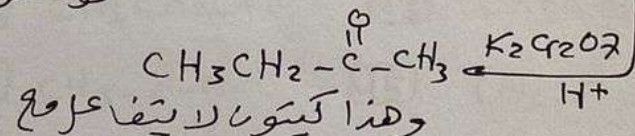 O
CH3CH2-C-CH3 K2Cr2O7
H+
وهذا كيتون لا يتفاعل مع